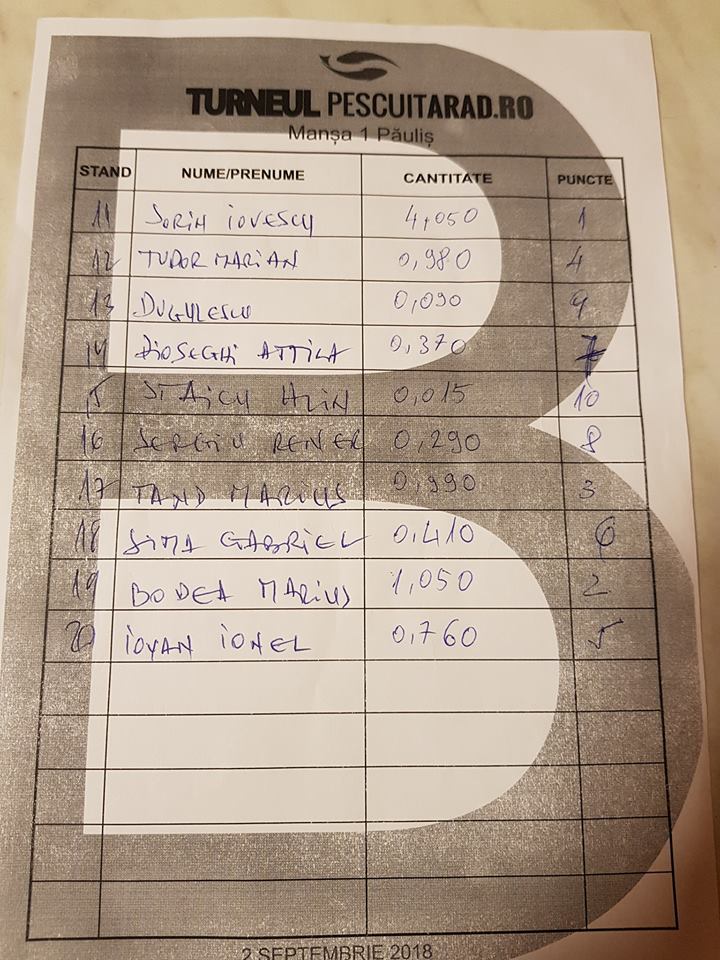 TURNEUL PESCUITARAD.RO
Manșa 1 Păuliș
STAND NUME/PRENUME CANTITATE PUNCTE
11 SORIN IOVESCU 4,050 1
12 TUDOR MARIAN 0,980 4
13 DUGULESCU 0,090 9
14 DIOSEGHI ATTILA 0,370 7
15 STAICU ALIN 0,015 10
16 SERGIU RENER 0,290 8
17 TAND MARIUS 0,990 3
18 SIMA GABRIEL 0,410 6
19 BODEA MARIUS 1,050 2
20 IOVAN IONEL 0,760 5
2 SEPTEMBRIE 2018